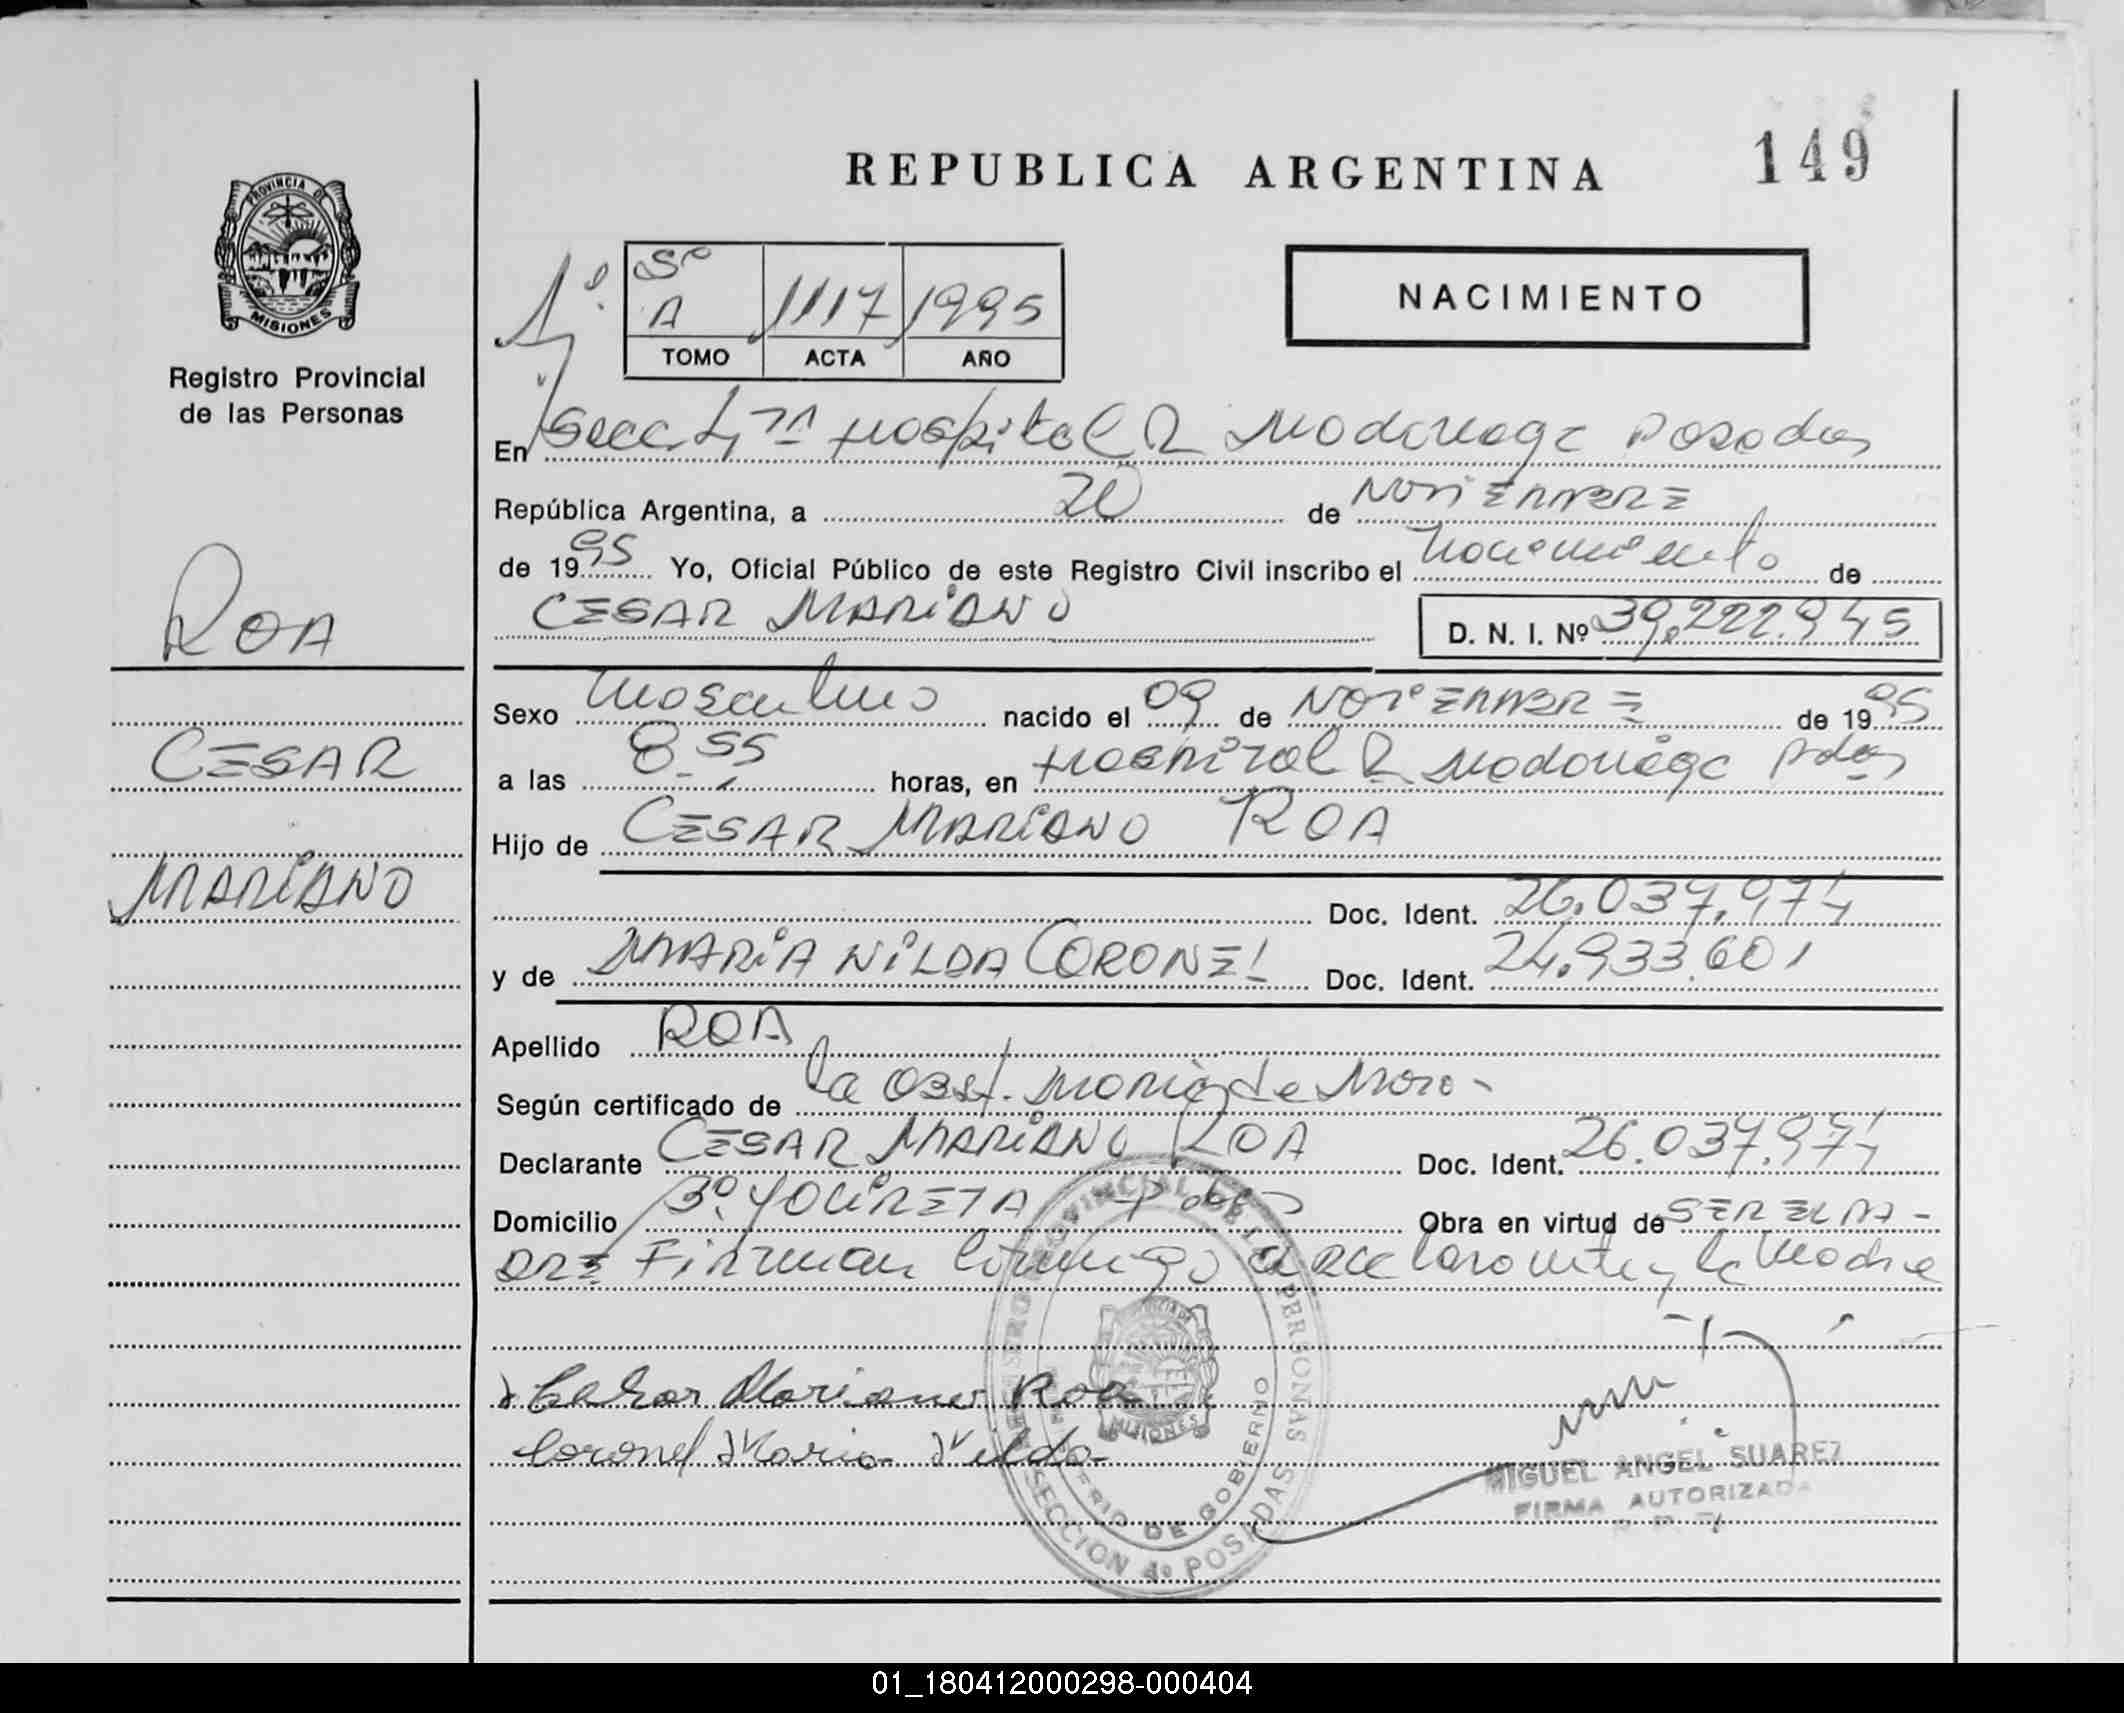 REPUBLICA ARGENTINA
149
PROVINCIA DE
MISIONES
Registro Provincial
de las Personas
1º
Sº
A 1117 1995
TOMO ACTA AÑO
NACIMIENTO
En Secc 4ta Hospital R Madariaga Posadas
República Argentina, a 20 de NOViEMBRE
de 1995 Yo, Oficial Público de este Registro Civil inscribo el Nacimiento de
CESAR MARiANO D. N. I. Nº 39.222.945
ROA
CESAR
MARiANO
Sexo Masculino nacido el 09 de NOViEMBRE de 1995
a las 8.55 horas, en Hospital R Madariaga Pdas
Hijo de CESAR MARiANO ROA
Doc. Ident. 26.037.974
y de MARiA NiLDA CORONEL Doc. Ident. 24.933.601
Apellido ROA
Según certificado de la Obst. Maria de Moro-
Declarante CESAR MARiANO ROA Doc. Ident. 26.037.974
Domicilio Bº. YACiRETA Pdas Obra en virtud de SER EL PA-
DRE Firman Conmigo el declarante y la Madre
Cesar Mariano Roa
Coronel Maria Nilda
REGISTRO PROVINCIAL DE LAS PERSONAS
MINISTERIO DE GOBIERNO
MISIONES
SECCION 4º POSADAS
MIGUEL ANGEL SUAREZ
FIRMA AUTORIZADA
01_180412000298-000404